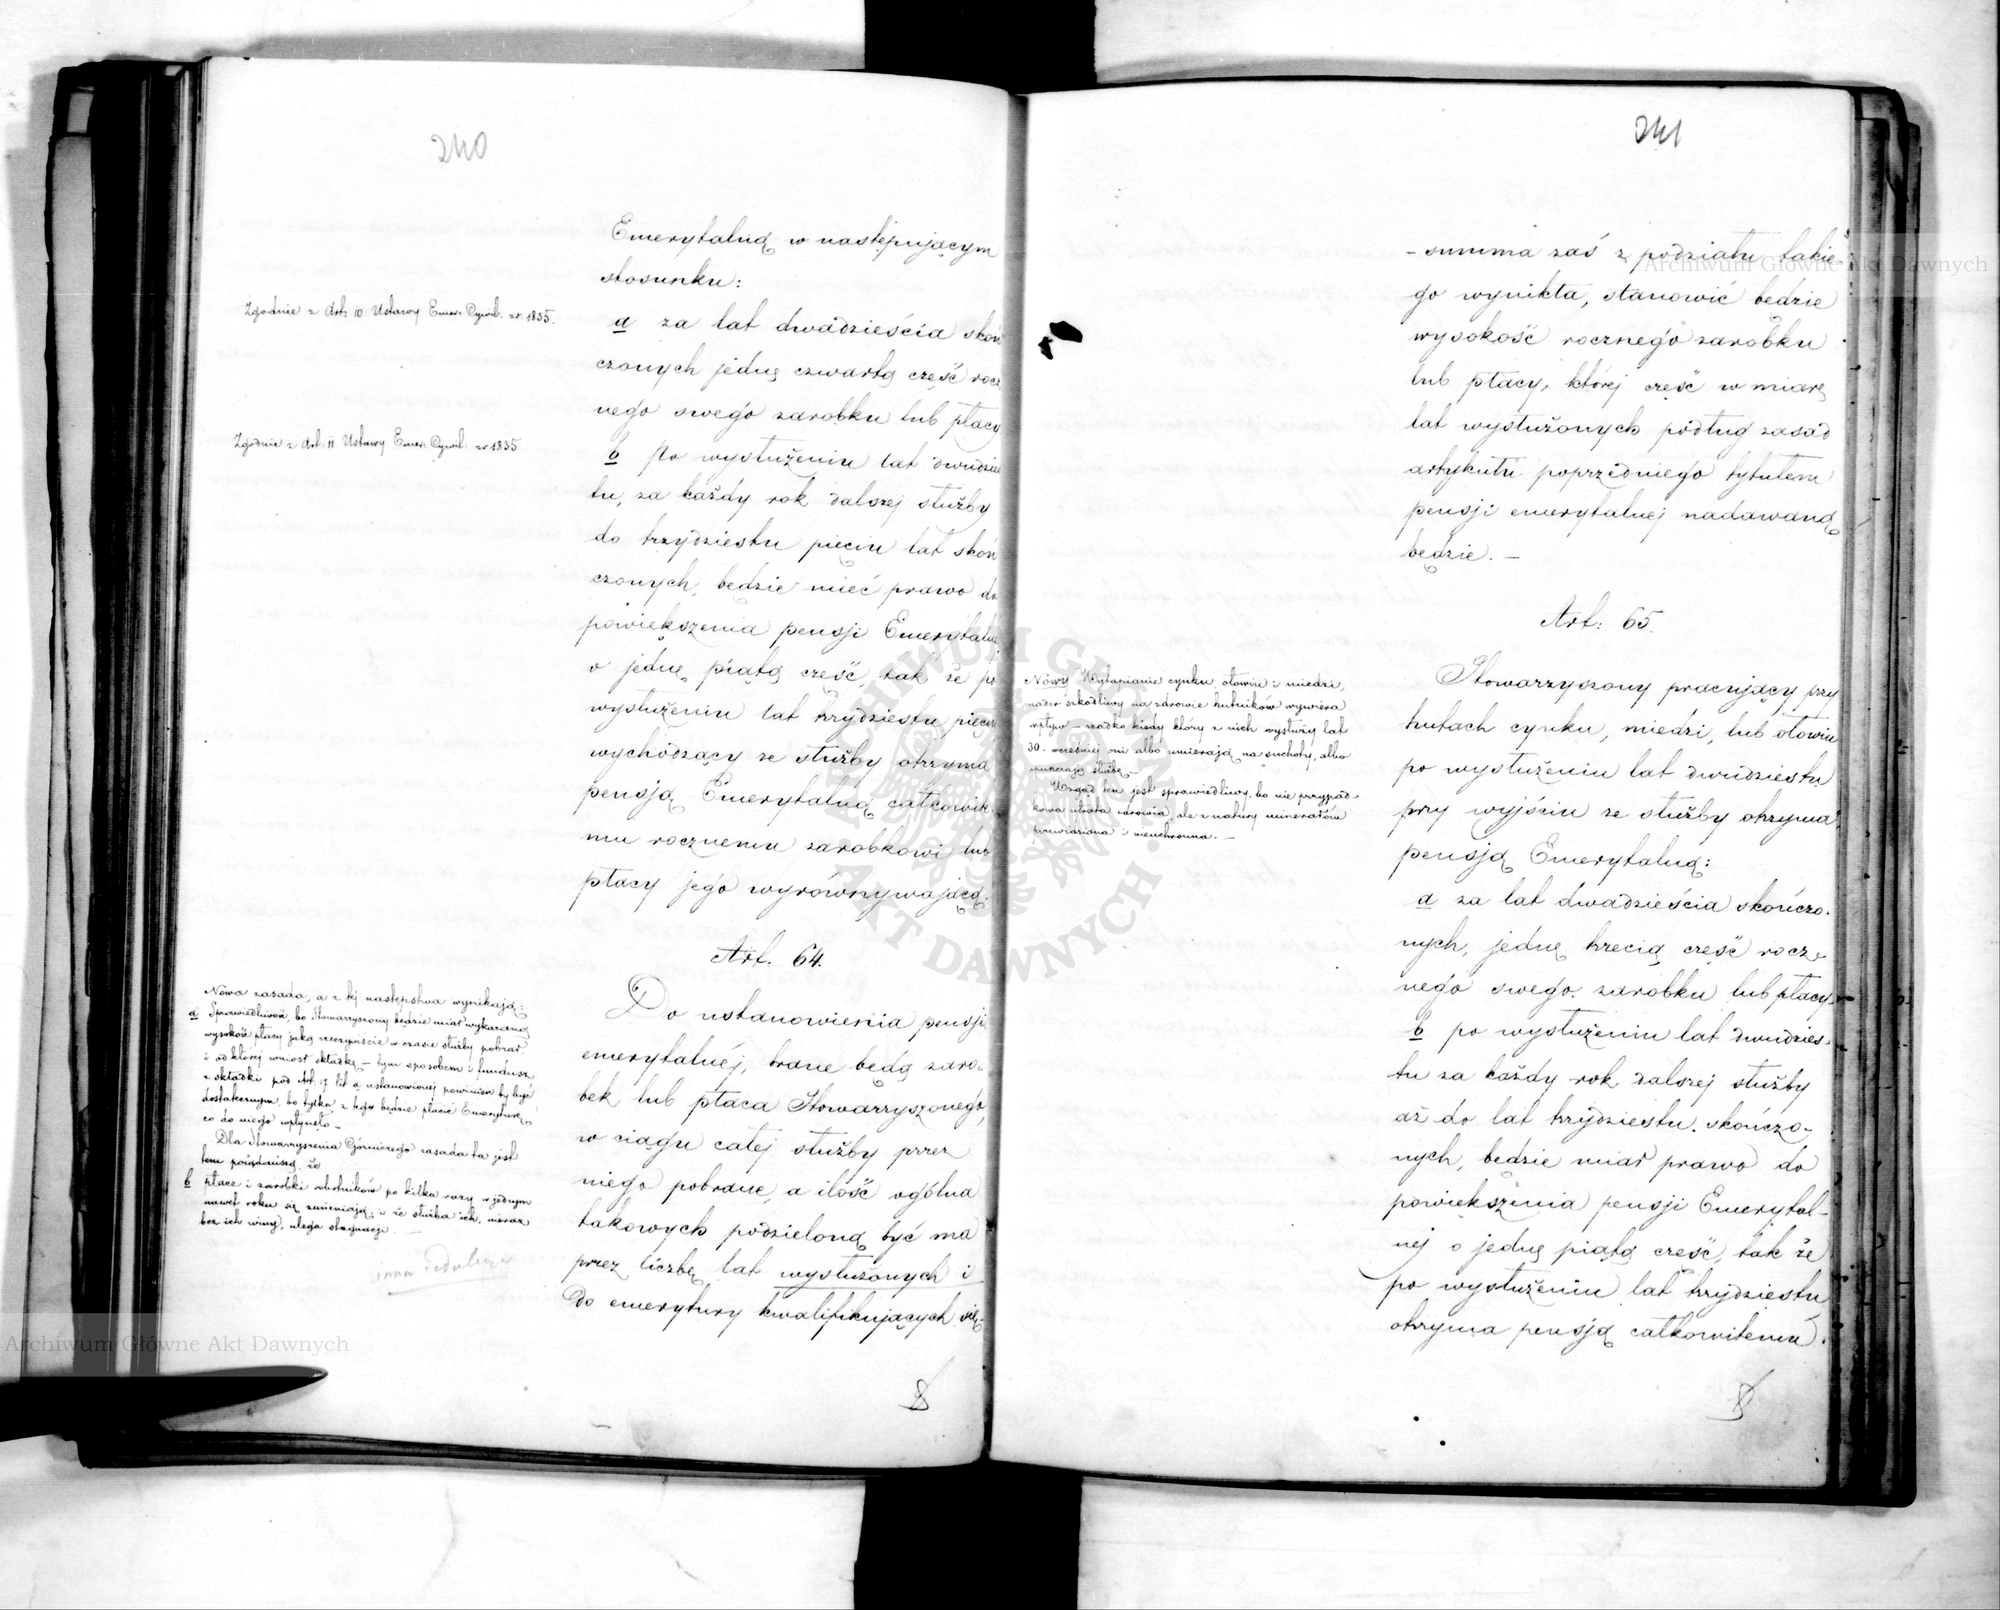 240
Emerytalną w następującym
stosunku:
Zgodnie z Art. 10 Ustawy Emer. Cywil. z r. 1835.
a za lat dwadzieścia skoń
czonych jednę czwartą część rocz
nego swego zarobku lub płacy
Zgodnie z Art. 11 Ustawy Emer. Cywil. z r 1835
b Po wysłużeniu lat dwudzies
tu, za każdy rok dalszej służby
do trzydziestu pięciu lat skoń
czonych, będzie mieć prawo do
powiększenia pensji Emerytaln
o jednę piątą część, tak że po
wysłużeniu lat trzydziestu pięciu
wychodzący ze służby otrzyma
pensją Emerytalną całkowite
mu rocznemu zarobkowi lub
płacy jego wyrównywającą.
Art. 64.
Do ustanowienia pensji
emerytalnéj, brane będą zaro-
bek lub płaca Stowarzyszonego,
w ciągu całej służby przez
niego pobrane, a ilość ogólna
takowych podzieloną być ma
przez liczbę lat wysłużonych i
do emerytury kwalifikujących się,
Nowa zasada, a z tej następstwa wynikają:
a Sprawiedliwość, bo Stowarzyszony będzie miał wykazaną
wysokość płacy jaką rzeczywiście w czasie służby pobrał
i od której wniosł składkę – tym sposobem i fundusz
z składki pod Art. 17 lit a ustanowionej powinien by być
dostatecznym, bo tylko z tego będzie płacić Emeryturę,
co do niego wpłynęło –
Dla Stowarzyszenia Górniczego zasada ta jest
tem pożądańszą że
b płace i zarobki robotników po kilka razy w jednym
nawet roku się zmieniają; i że służba ich, nieraz
bez ich winy, ulega stagnacji. –
Archiwum Główne Akt Dawnych
241
– summa zaś z podziału takie-
go wynikła, stanowić będzie
wysokość rocznego zarobku
lub płacy, której część w miarę
lat wysłużonych podług zasad
artykułu poprzedniego tytułem
pensji emerytalnej nadawaną
będzie. –
Art: 65.
Nowy Wytapianie cynku, ołowiu i miedzi,
nader szkodliwy na zdrowie hutników wywiera
wpływ – rzadko kiedy który z nich wysłuży lat
30 – wcześniej oni albo umierają na suchoty, albo
służbę –
Wzgląd ten jest sprawiedliwy, bo nie przypad-
kowa utrata zdrowia, ale z natury minerałów
przewidziana i nieuchronna. –
Stowarzyszony pracujący przy
hutach cynku, miedzi, lub ołowiu
po wysłużeniu lat dwudziestu
przy wyjściu ze służby otrzyma
pensją Emerytalną:
a za lat dwadzieścia skończo-
nych, jednę trzecią część rocz-
nego swego zarobku lub płacy.
b po wysłużeniu lat dwudzies-
tu za każdy rok dalszej służby
aż do lat trzydziestu skończo-
nych, będzie miał prawo do
powiększenia pensji Emerytal-
nej o jednę piątą część, tak że
po wysłużeniu lat trzydziestu
otrzyma pensją całkowitemu
Archiwum Główne Akt Dawnych
ARCHIWUM GŁÓWNE AKT DAWNYCH